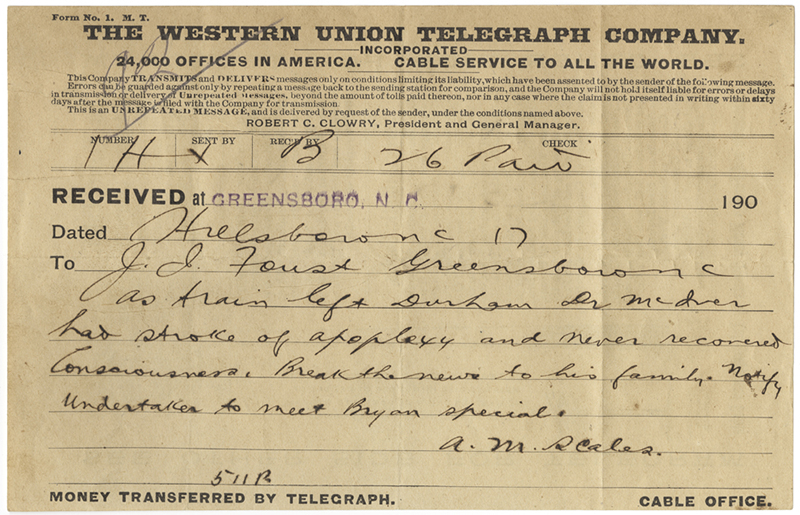 Form No. 1. M. T.
THE WESTERN UNION TELEGRAPH COMPANY.
INCORPORATED
24,000 OFFICES IN AMERICA. CABLE SERVICE TO ALL THE WORLD.
This Company TRANSMITS and DELIVERS messages only on conditions limiting its liability, which have been assented to by the sender of the following message.
Errors can be guarded against only by repeating a message back to the sending station for comparison, and the Company will not hold itself liable for errors or delays
in transmission or delivery of Unrepeated Messages, beyond the amount of tolls paid thereon, nor in any case where the claim is not presented in writing within sixty
days after the message is filed with the Company for transmission.
This is an UNREPEATED MESSAGE, and is delivered by request of the sender, under the conditions named above.
ROBERT C. CLOWRY, President and General Manager.
NUMBER SENT BY REC'D BY CHECK
1 H X B 26 Paid
RECEIVED at GREENSBORO, N. C. 190
Dated Hillsboro nc 17
To J. I. Foust Greensboro nc
as train left Durham Dr McIver
had stroke of apoplexy and never recovered
Consciousness. Break the news to his family. Notify
Undertaker to meet Bryan special.
A. M. Scales.
511P
MONEY TRANSFERRED BY TELEGRAPH. CABLE OFFICE.